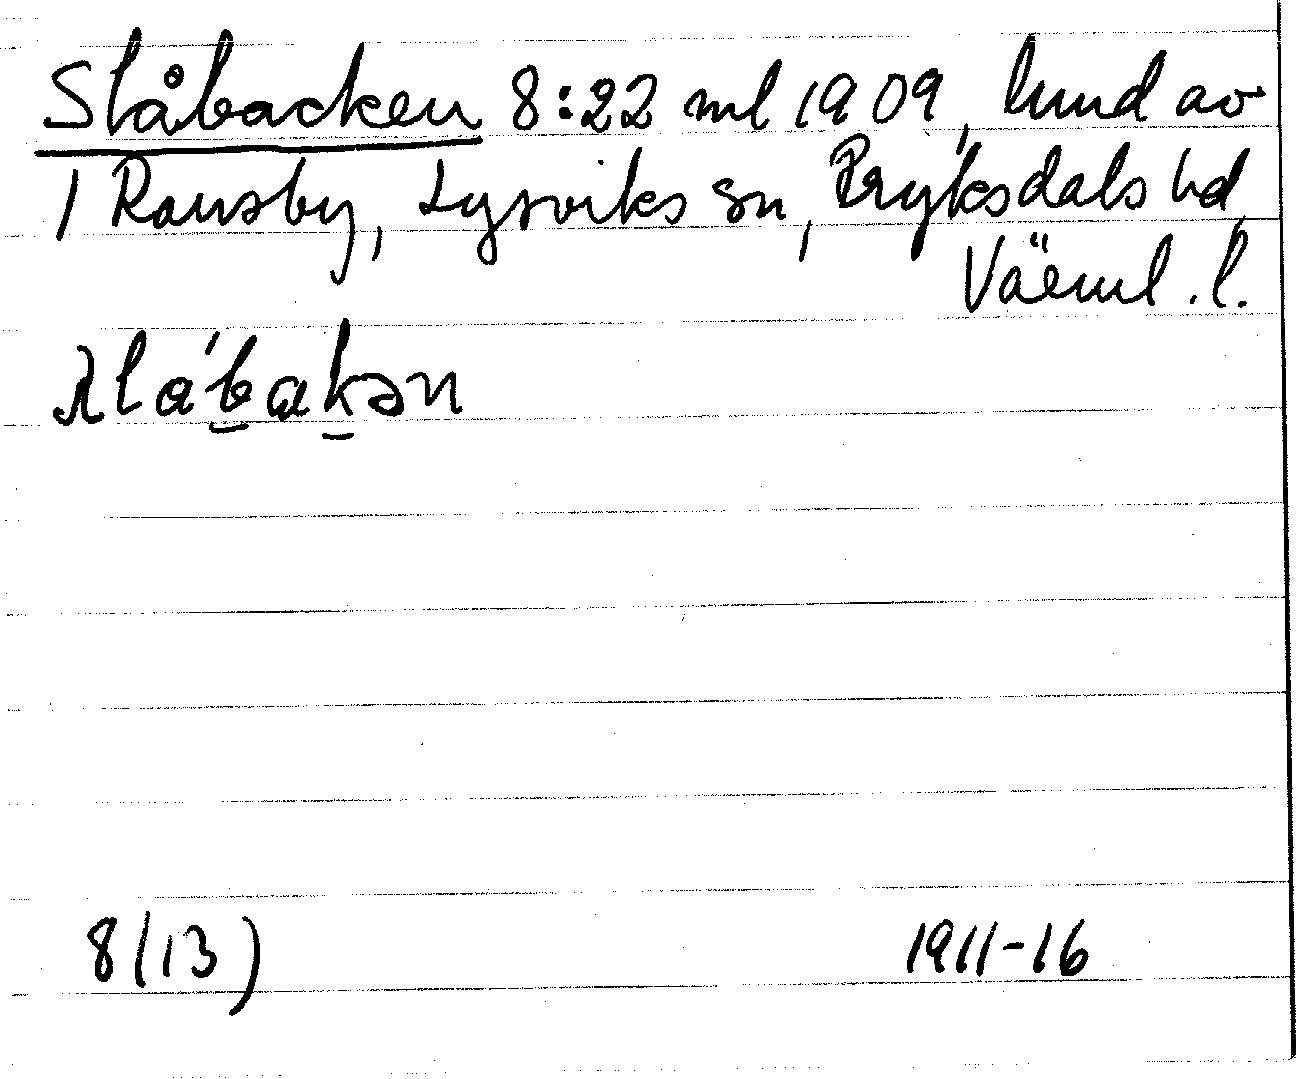 Slåbacken 8:22 ml 1909, hmd av
1 Ransby, Lysviks sn, Fryksdals hd,
Värml. l.
ꞩlábakən
8(13) 1911-16